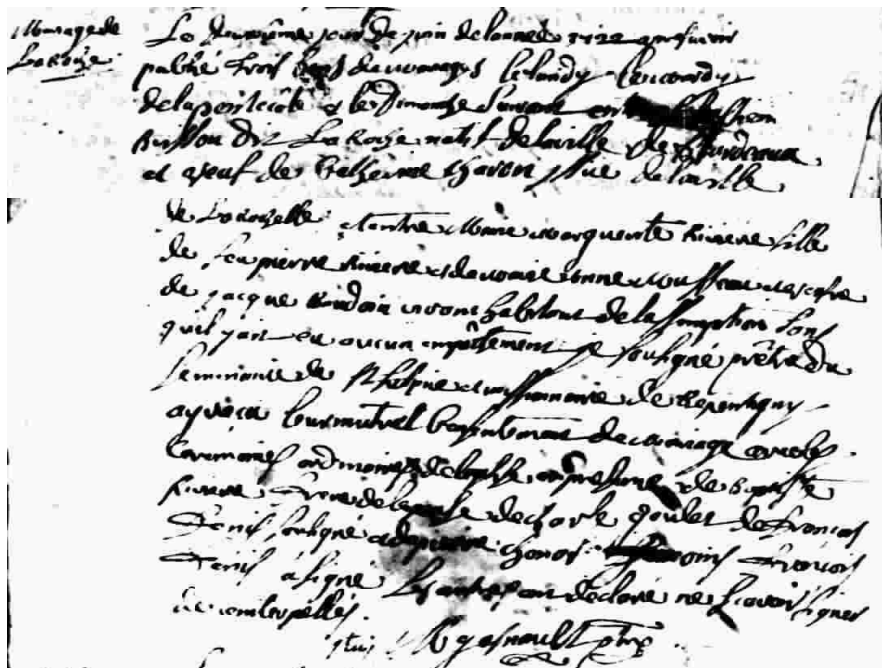 Mariage de
LaRoze
Le deuxième jour de juin de l'année 1722 apres avoir
publié trois bans de mariages le lundy le mardy
de la pentecôte et le Dimanche suivant
Buisson dit LaRoze natif de la ville de Bourdeaux
et veuf de Catherine Charon de la ville
de LaRochelle et entre Marie Marguerite Riviere fille
de feu pierre Riviere et de marie anne Mousseau
de jacque Baudoin habitant de lassomption sans
quil y ait eu aucun empêchement je soussigné prêtre du
seminaire de St Sulpice et missionnaire de Repentigny
ay reçu leur mutuel consentement de mariage avec les
ceremonies ordinaires de l'eglise en presence de Baptiste
Riviere frere de de charle goulet de francois
Denis soussigné et de pierre temoins francois
Denis a signé les autres ont declaré ne sçavoir signer
de ce interpellés
R gasnault ptre